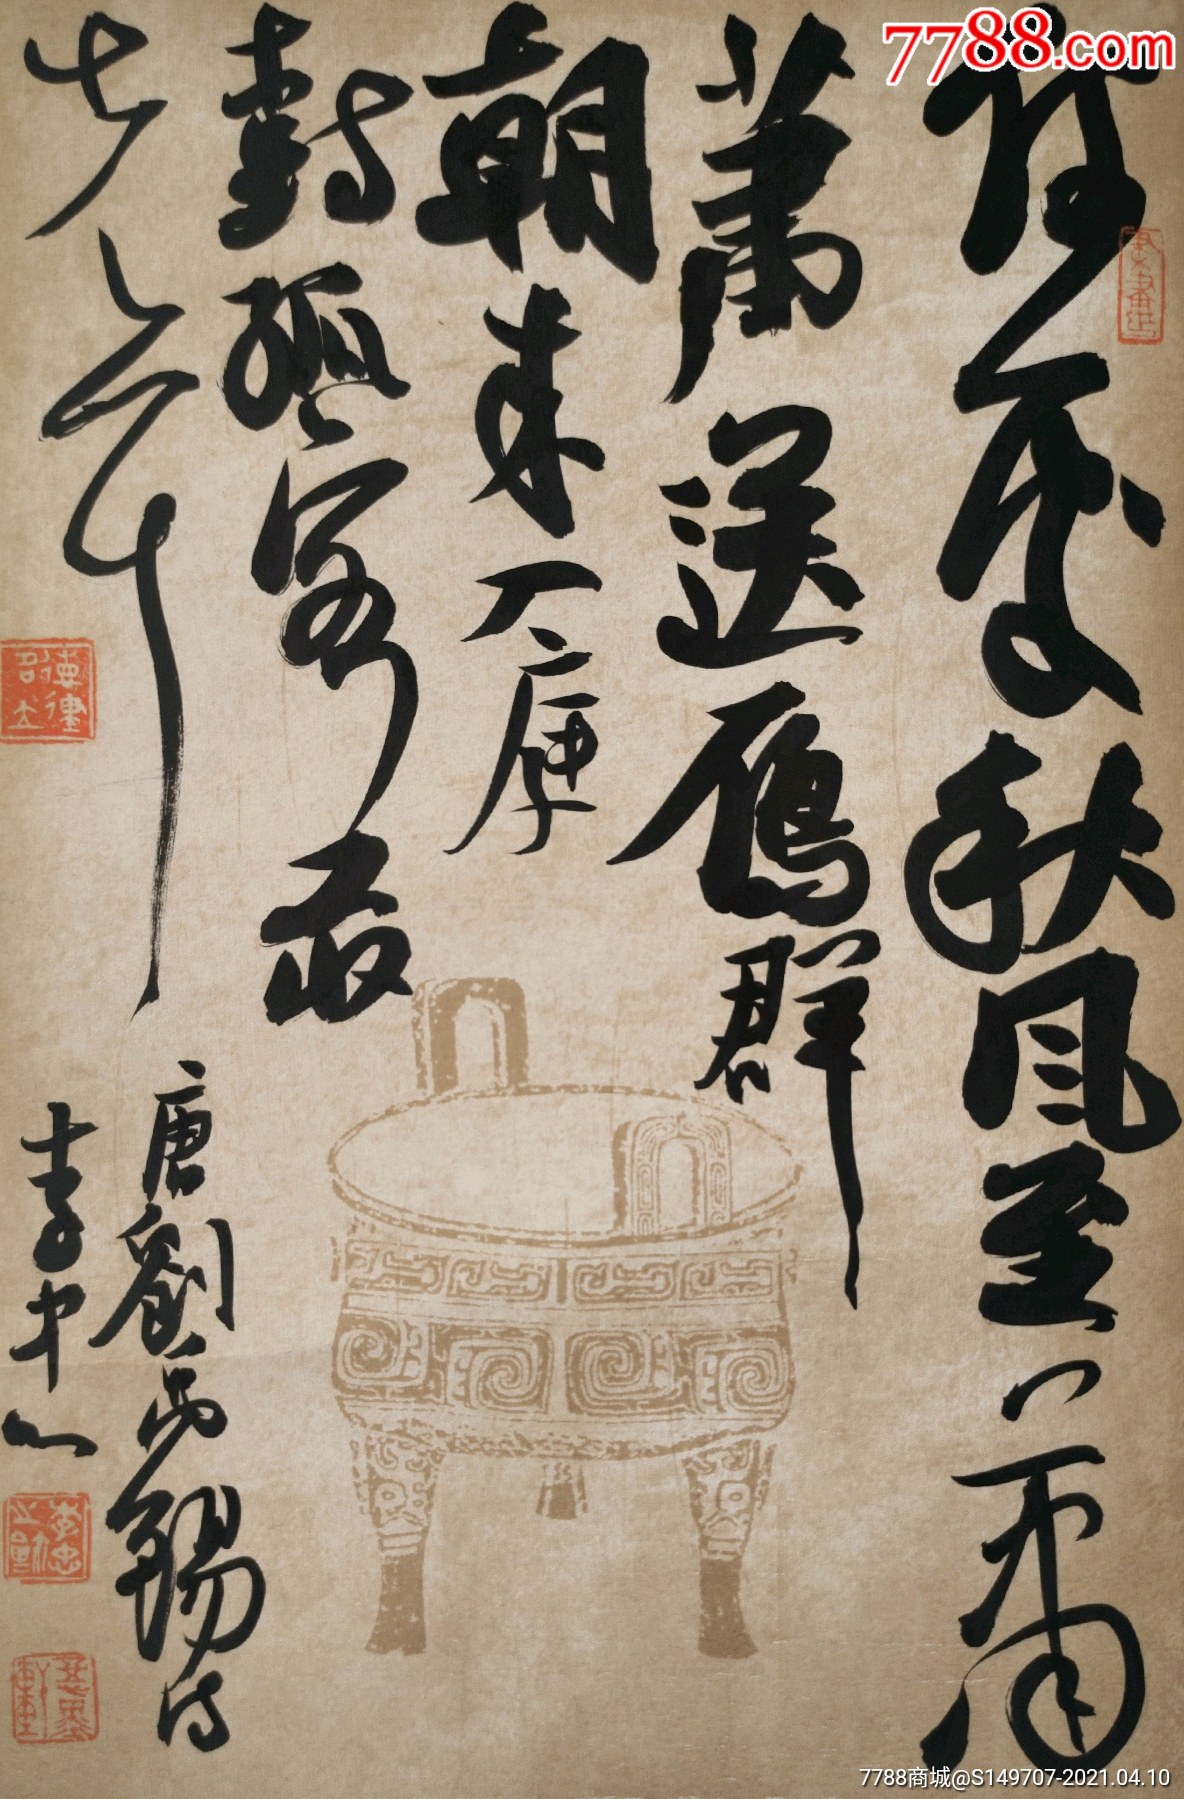 何處秋風至蕭
蕭送鴈群
朝来入庭
樹孤客最
先聞
唐劉禹錫詩
李中
7788.com
7788商城@S149707-2021.04.10